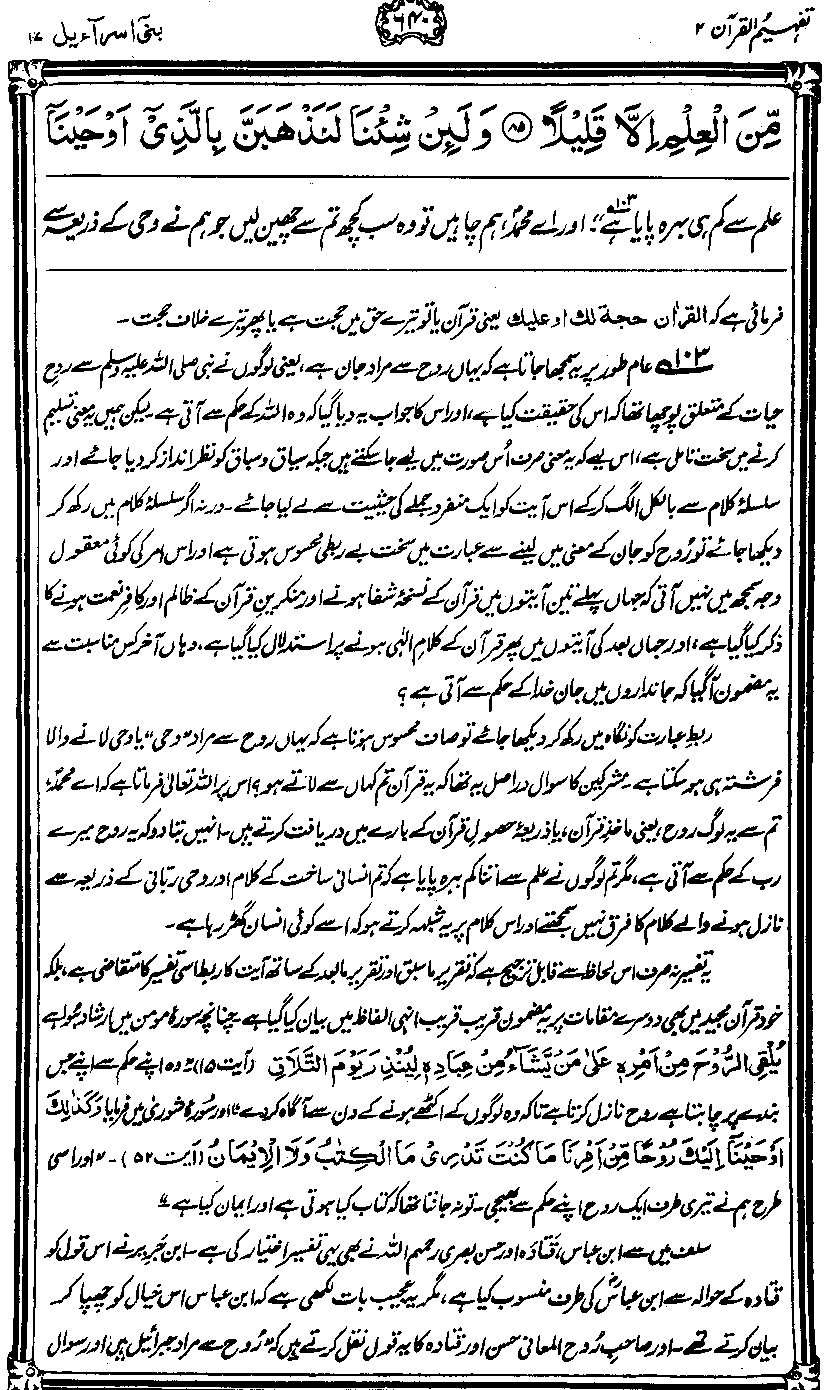 تفہیم القرآن ۲
۶۴۰
بنی اسرآءیل ۱۷
مِّنَ الْعِلْمِ اِلَّا قَلِيْلًا ﴿۸۵﴾ وَلَىِٕنْ شِئْنَا لَنَذْهَبَنَّ بِالَّذِیْۤ اَوْحَيْنَاۤ
علم سے کم ہی بہرہ پایا ہے“۱۰۳؎۔ اور اے محمدؐ، ہم چاہیں تو وہ سب کچھ تم سے چھین لیں جو ہم نے وحی کے ذریعہ سے
فرمائی ہے کہ القراٰن حجۃ لک او علیک یعنی قرآن یا تو تیرے حق میں حجت ہے یا پھر تیرے خلاف حجت۔
۱۰۳؎ عام طور پر یہ سمجھا جاتا ہے کہ یہاں روح سے مراد جان ہے، یعنی لوگوں نے نبی صلی اللہ علیہ وسلم سے روحِ
حیات کے متعلق پوچھا تھا کہ اس کی حقیقت کیا ہے، اور اس کا جواب یہ دیا گیا کہ وہ اللہ کے حکم سے آتی ہے۔ لیکن ہمیں یہ معنی تسلیم
کرنے میں سخت تامل ہے، اس لیے کہ یہ معنی صرف اُس صورت میں لیے جا سکتے ہیں جبکہ سیاق و سباق کو نظر انداز کر دیا جائے اور
سلسلۂ کلام سے بالکل الگ کر کے اس آیت کو ایک منفرد جملے کی حیثیت سے لے لیا جائے۔ ورنہ اگر سلسلۂ کلام میں رکھ کر
دیکھا جائے تو رُوح کو جان کے معنی میں لینے سے عبارت میں سخت بے ربطی محسوس ہوتی ہے اور اس امر کی کوئی معقول
وجہ سمجھ میں نہیں آتی کہ جہاں پہلے تین آیتوں میں قرآن کے نسخۂ شفا ہونے اور منکرینِ قرآن کے ظالم اور کافرِ نعمت ہونے کا
ذکر کیا گیا ہے، اور جہاں بعد کی آیتوں میں پھر قرآن کے کلامِ الٰہی ہونے پر استدلال کیا گیا ہے، وہاں آخر کس مناسبت سے
یہ مضمون آ گیا کہ جانداروں میں جان خدا کے حکم سے آتی ہے؟
ربطِ عبارت کو نگاہ میں رکھ کر دیکھا جائے تو صاف محسوس ہوتا ہے کہ یہاں روح سے مراد ”وحی“ یا وحی لانے والا
فرشتہ ہی ہو سکتا ہے۔ مشرکین کا سوال دراصل یہ تھا کہ یہ قرآن تم کہاں سے لاتے ہو؟ اس پر اللہ تعالیٰ فرماتا ہے کہ اے محمدؐ،
تم سے یہ لوگ روح، یعنی ماخذِ قرآن، یا ذریعۂ حصولِ قرآن کے بارے میں دریافت کرتے ہیں۔ انہیں بتا دو کہ یہ روح میرے
رب کے حکم سے آتی ہے، مگر تم لوگوں نے علم سے اتنا کم بہرہ پایا ہے کہ تم انسانی ساخت کے کلام اور وحیِ ربانی کے ذریعہ سے
نازل ہونے والے کلام کا فرق نہیں سمجھتے اور اس کلام پر یہ شبہہ کرتے ہو کہ اسے کوئی انسان گھڑ رہا ہے۔
یہ تفسیر نہ صرف اس لحاظ سے قابلِ ترجیح ہے کہ تقریرِ ماسبق اور تقریرِ مابعد کے ساتھ آیت کا ربط اسی تفسیر کا متقاضی ہے، بلکہ
خود قرآن مجید میں بھی دوسرے مقامات پر یہ مضمون قریب قریب انہی الفاظ میں بیان کیا گیا ہے۔ چنانچہ سورۂ مومن میں ارشاد ہوا ہے
يُلْقِی الرُّوْحَ مِنْ اَمْرِهٖ عَلٰی مَنْ يَّشَآءُ مِنْ عِبَادِهٖ لِيُنْذِرَ يَوْمَ التَّلَاقِ (آیت ۱۵) ”وہ اپنے حکم سے اپنے جس
بندے پر چاہتا ہے روح نازل کرتا ہے تاکہ وہ لوگوں کے اکٹھے ہونے کے دن سے آگاہ کر دے“ اور سُورۂ شوریٰ میں فرمایا وَكَذٰلِكَ
اَوْحَيْنَاۤ اِلَيْكَ رُوْحًا مِّنْ اَمْرِنَا مَا كُنْتَ تَدْرِیْ مَا الْكِتٰبُ وَلَا الْاِيْمَانُ (آیت ۵۲)۔ ”اور اسی
طرح ہم نے تیری طرف ایک روح اپنے حکم سے بھیجی۔ تو نہ جانتا تھا کہ کتاب کیا ہوتی ہے اور ایمان کیا ہے“۔
سلف میں سے ابن عباس، قَتادہ اور حسن بصری رحمہم اللہ نے بھی یہی تفسیر اختیار کی ہے۔ ابن جَریر نے اس قول کو
قتادہ کے حوالہ سے ابن عباسؓ کی طرف منسوب کیا ہے، مگر یہ عجیب بات لکھی ہے کہ ابن عباس اس خیال کو چھپا کر
بیان کرتے تھے۔ اور صاحبِ رُوح المعانی حسن اور قتادہ کا یہ قول نقل کرتے ہیں کہ ”رُوح سے مراد جبرائیل ہیں اور سوال